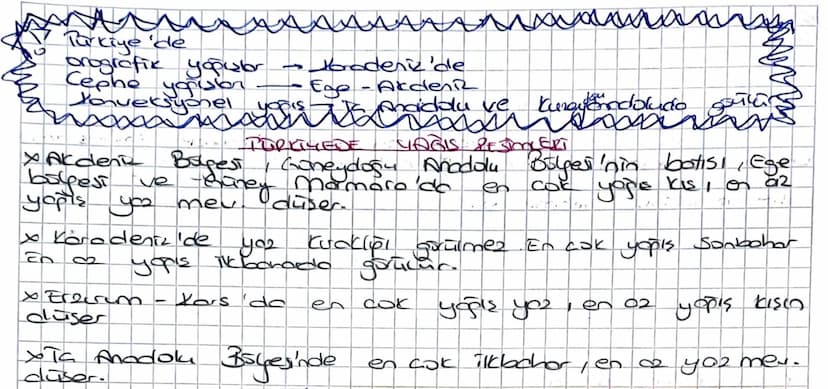 Türkiye'de
orografik yağışlar → Karadeniz'de
Cephe yağışları → Ege - Akdeniz
Konveksiyonel yağış → İç Anadolu ve Kuzeydoğu Anadoluda görülür
TÜRKİYEDE YAĞIŞ REJİMLERİ
x Akdeniz Bölgesi, Güneydoğu Anadolu Bölgesi'nin batısı, Ege
bölgesi ve Güney Marmara'da en çok yağış kış, en az
yağış yaz mev. düşer.
x Karadeniz'de yaz kuraklığı görülmez. En çok yağış sonbahar
En az yağış ilkbaharda görülür.
x Erzurum - Kars'da en çok yağış yaz, en az yağış kışın
düşer
x İç Anadolu Bölgesi'nde en çok ilkbahar, en az yaz mev.
düşer.